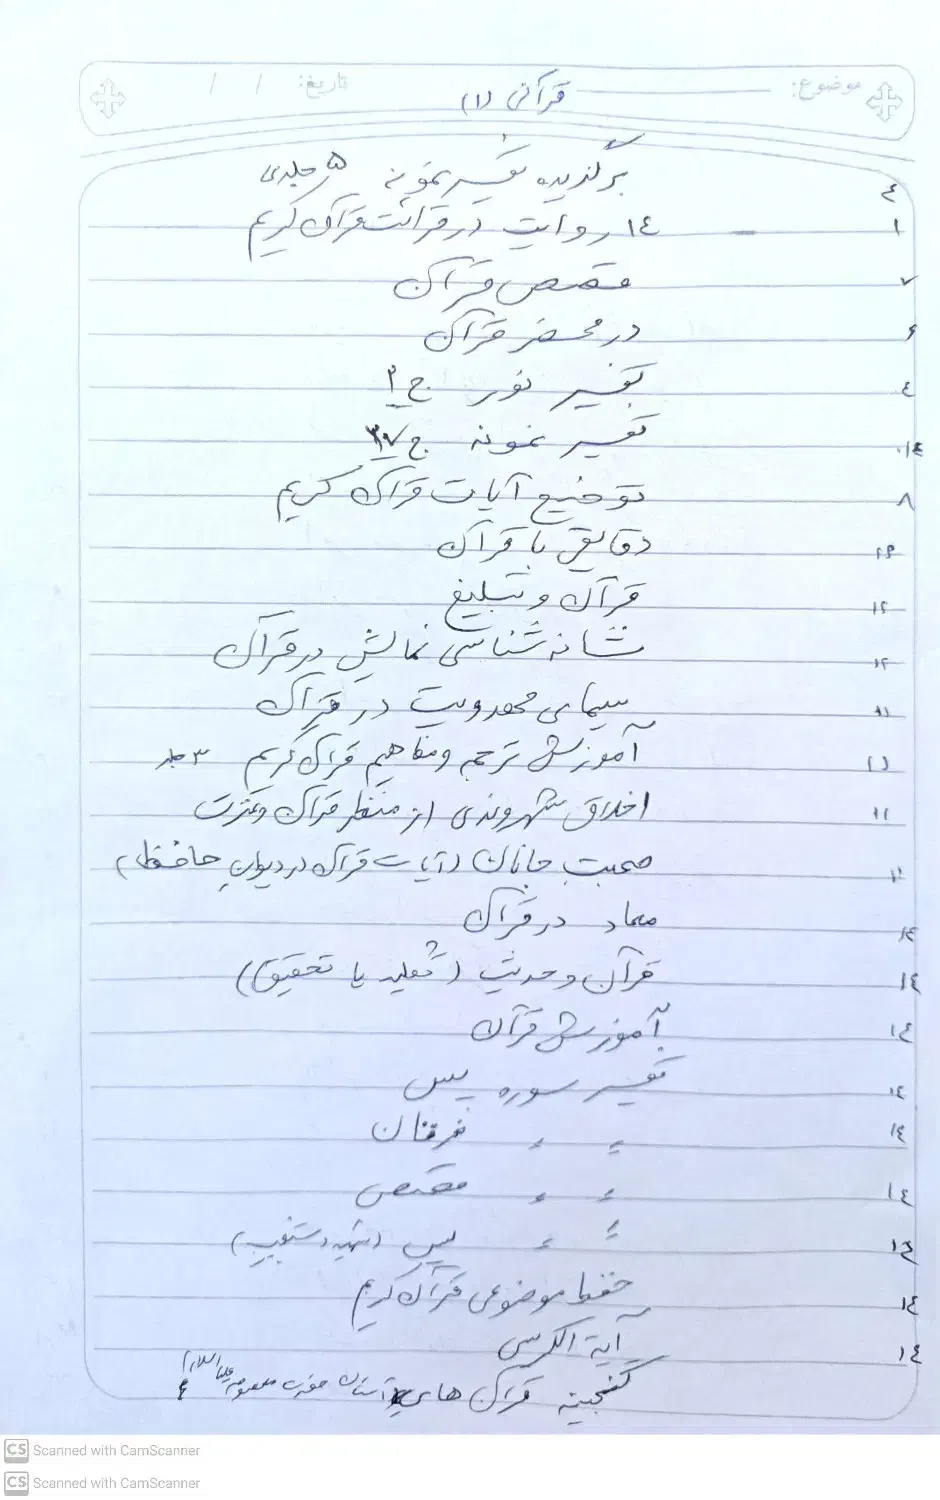 موضوع: قرآنی (۱) تاریخ: / /
٤ برگزیده تفسیر نمونه ۵ جلدی
۱ ١٤ روایت در قرائت قرآن کریم
۷ قصص قرآن
۶ در محضر قرآن
٤ تفسیر نور ج ۲
١٤ تفسیر نمونه ج ۲۷
۸ توضیح آیات قرآن کریم
دقایقی با قرآن
۱۲ قرآن و تبلیغ
۱۲ نشانه شناسی نمایش در قرآن
۱۱ سیمای مهدویت در قرآن
آموزش ترجمه و مفاهیم قرآن کریم ۳ جلد
۱۱ اخلاق شهروندی از منظر قرآن و عترت
۱۱ صحبت جانان (آیات قرآن در دیوان حافظ)
١٤ معاد در قرآن
١٤ قرآن و حدیث (تقلید یا تحقیق؟)
١٤ آموزش قرآن
١٤ تفسیر سوره یس
١٤ " " فرقان
١٤ " " قصص
١٤ " " یس (شهید دستغیب)
١٤ حفظ موضوعی قرآن کریم
١٤ آیة الکرسی
گنجینه قرآن های آستان حضرت معصومه علیها السلام
CS Scanned with CamScanner
CS Scanned with CamScanner